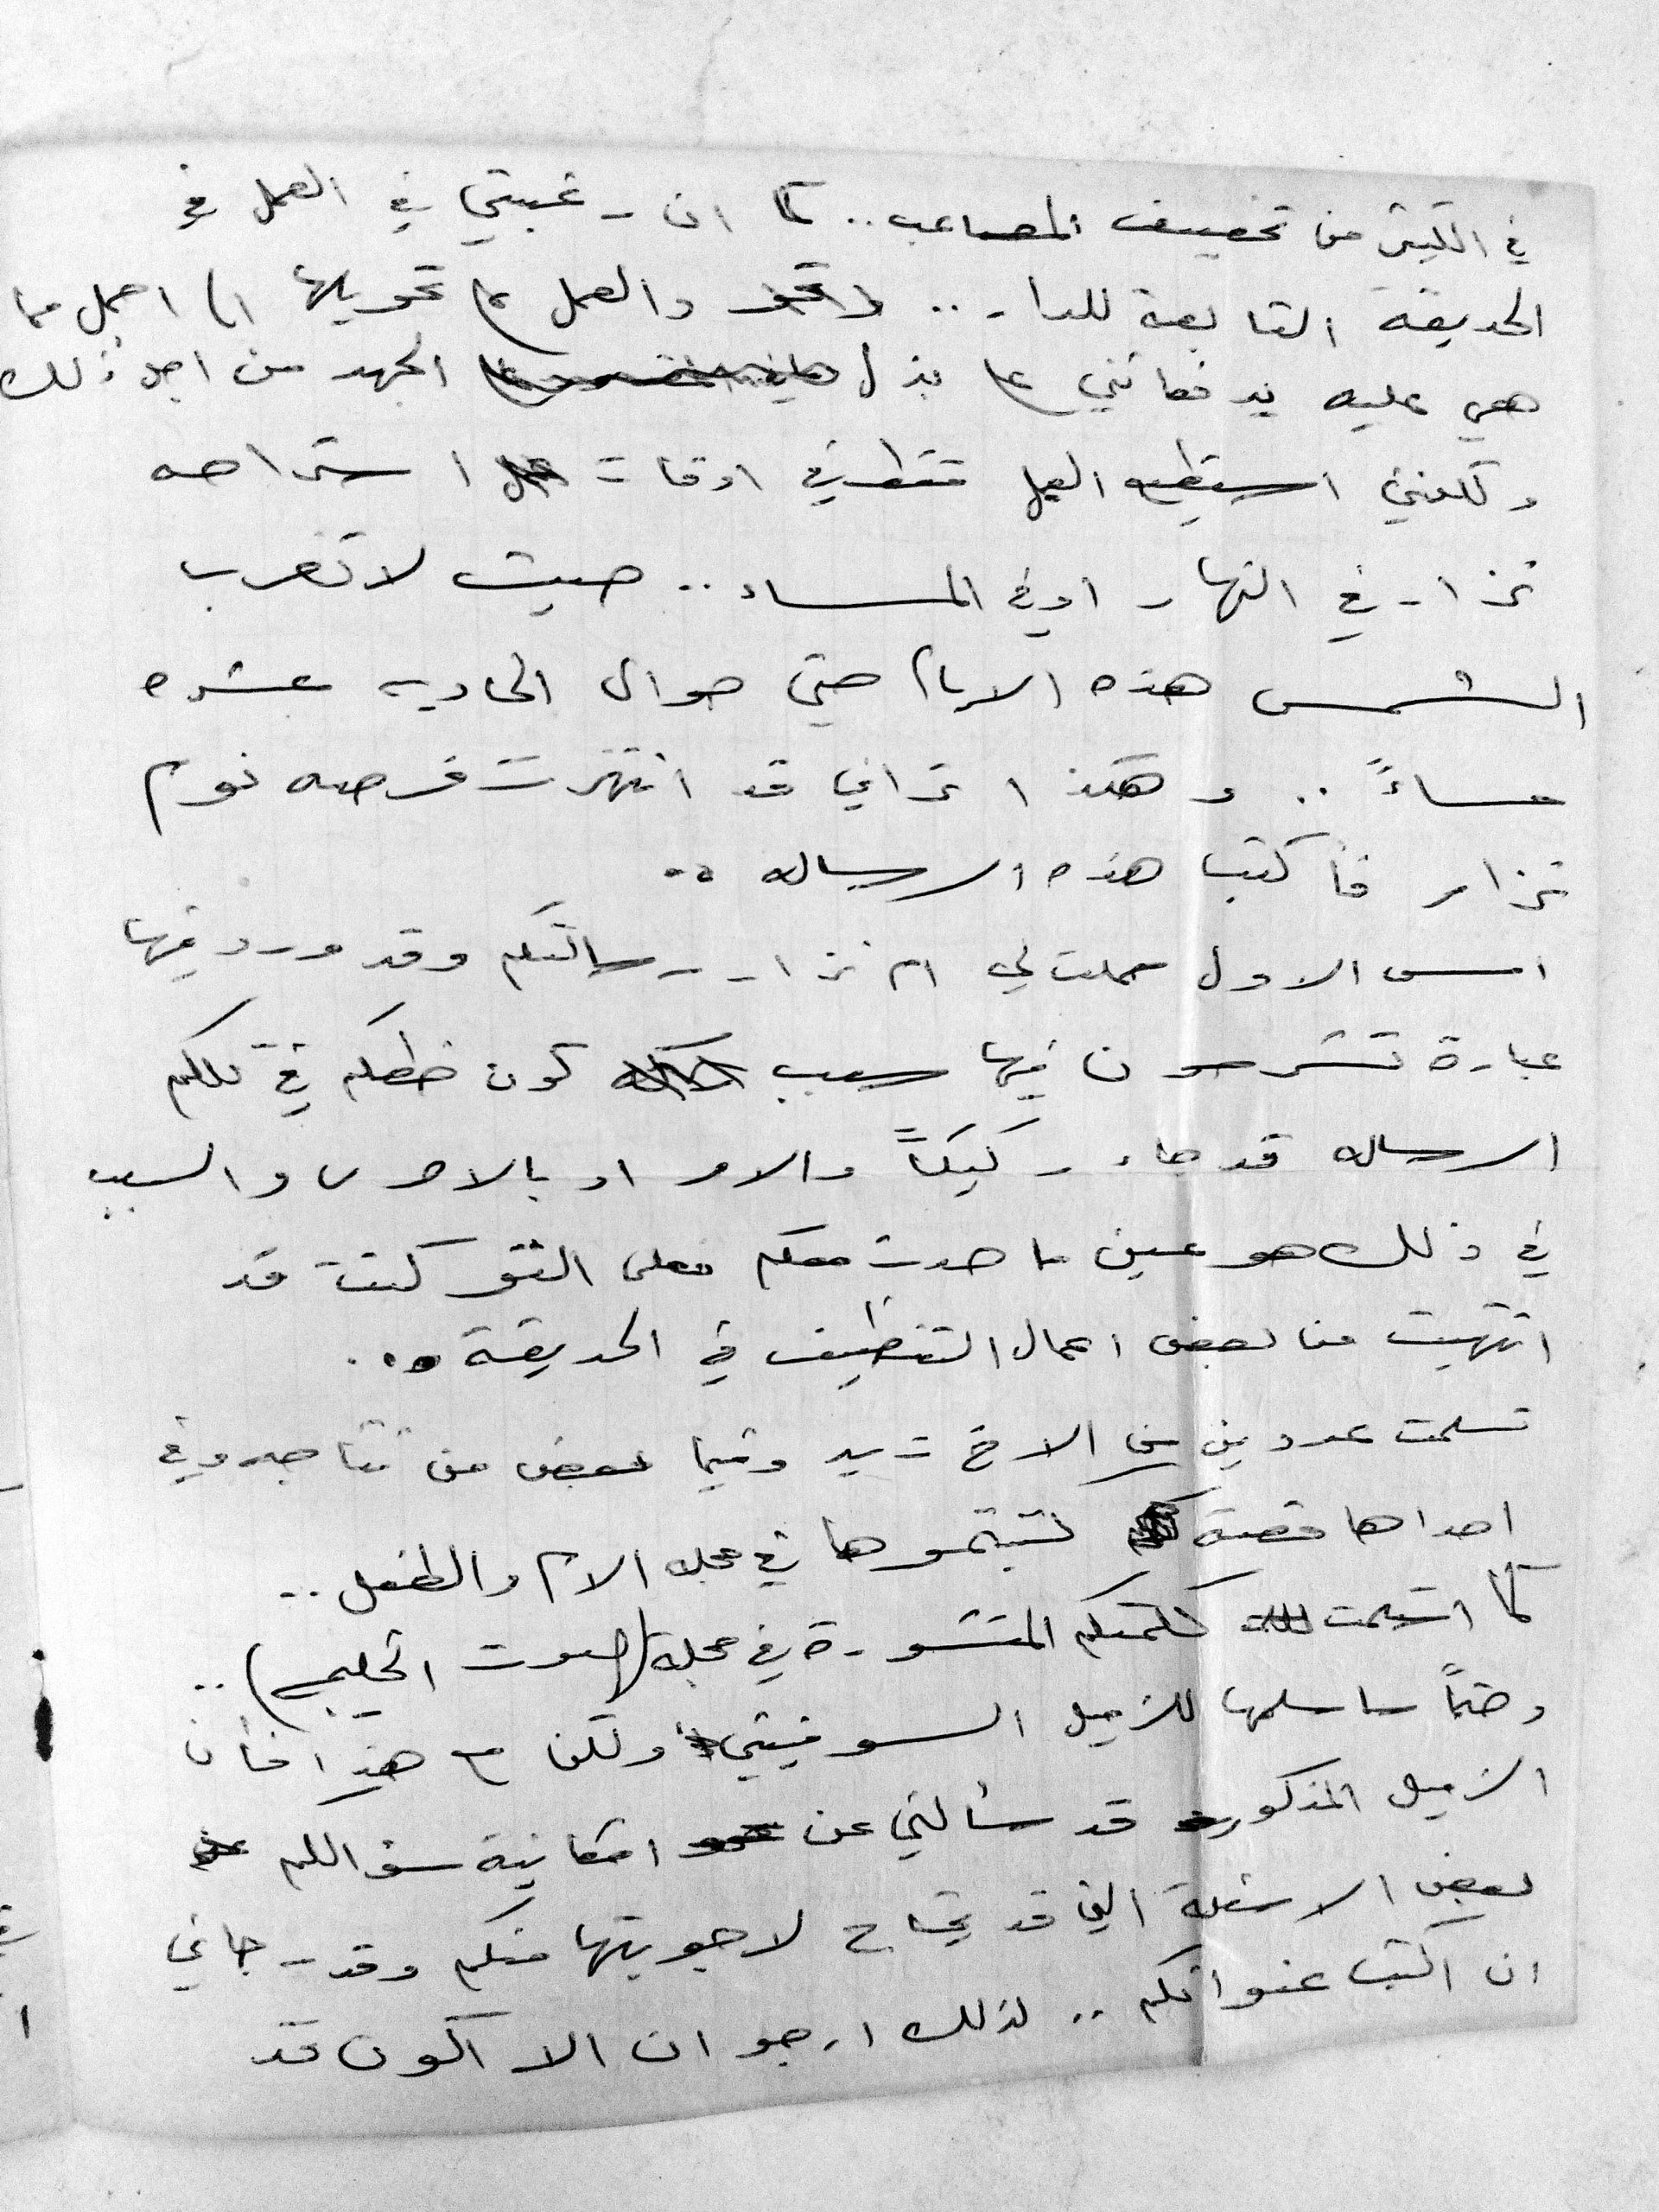 في الكثير من تخفيف المصاعب.. كما ان رغبتي في العمل في
الحديقة التابعة للدار.. والعمل على تحويلها الى اجمل مما
هي عليه يدفعانني على بذل الجهد من اجل ذلك
ولكنني استطيع العمل فقط في اوقات استراحه
نزار في النهار او في المساء.. حيث لا تغرب
الشمس هذه الايام حتى حوالى الحاديه عشره
مساءً.. وهكذا تراني قد انتهزت فرصه نوم
نزار فأكتب هذه الرساله..
امس الاول حملت لي ام نزار رسالتكم وقد ورد فيها
عبارة تشرحون فيها سبب كون خطكم في تلكم
الرساله قد جاء ركيكاً والامر او بالاحرى والسبب
في ذلك هو عين ما حدث معكم فعلى التو كنت قد
انتهيت من بعض اعمال التنظيف في الحديقة..
تسلمت عددين من الاخ وفيما بعض من نتاجه وفي
احداها قصة كتبتموها في مجله الام والطفل..
كما استلمت كلمتكم المنشورة في مجلة (صوت الخليج)..
وحتماً ساسلمها للزميل السوفيتي ولكن مع هذا فأن
الزميل المذكور قد سألني عن امكانية سؤالكم
بعض الاسئلة التي قد يحتاج لاجوبتها منكم وقد رجاني
ان اكتب عنوانكم.. لذلك ارجو ان الا اكون قد